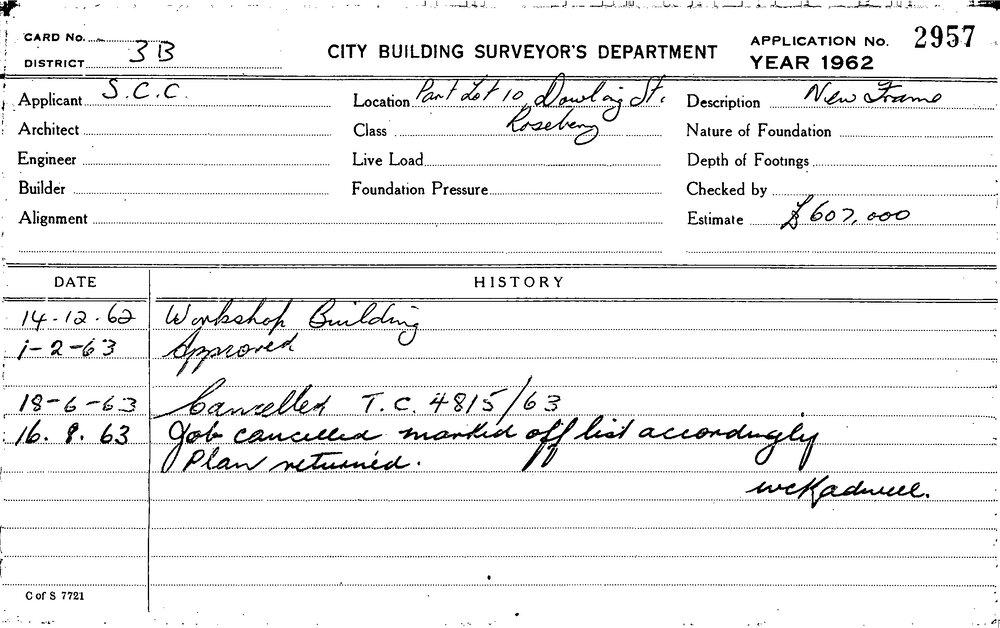 CARD No.
DISTRICT 3B
CITY BUILDING SURVEYOR'S DEPARTMENT
APPLICATION No. 2957
YEAR 1962
Applicant S.C.C. Location Part Lot 10, Dowling St. Description New Frame
Architect Class Rosebery Nature of Foundation
Engineer Live Load Depth of Footings
Builder Foundation Pressure Checked by
Alignment Estimate £607,000
DATE HISTORY
14-12-62 Workshop Building
1-2-63 Approved
18-6-63 Cancelled T.C. 4815/63
16.8.63 Job cancelled marked off list accordingly
Plan returned.
C of S 7721